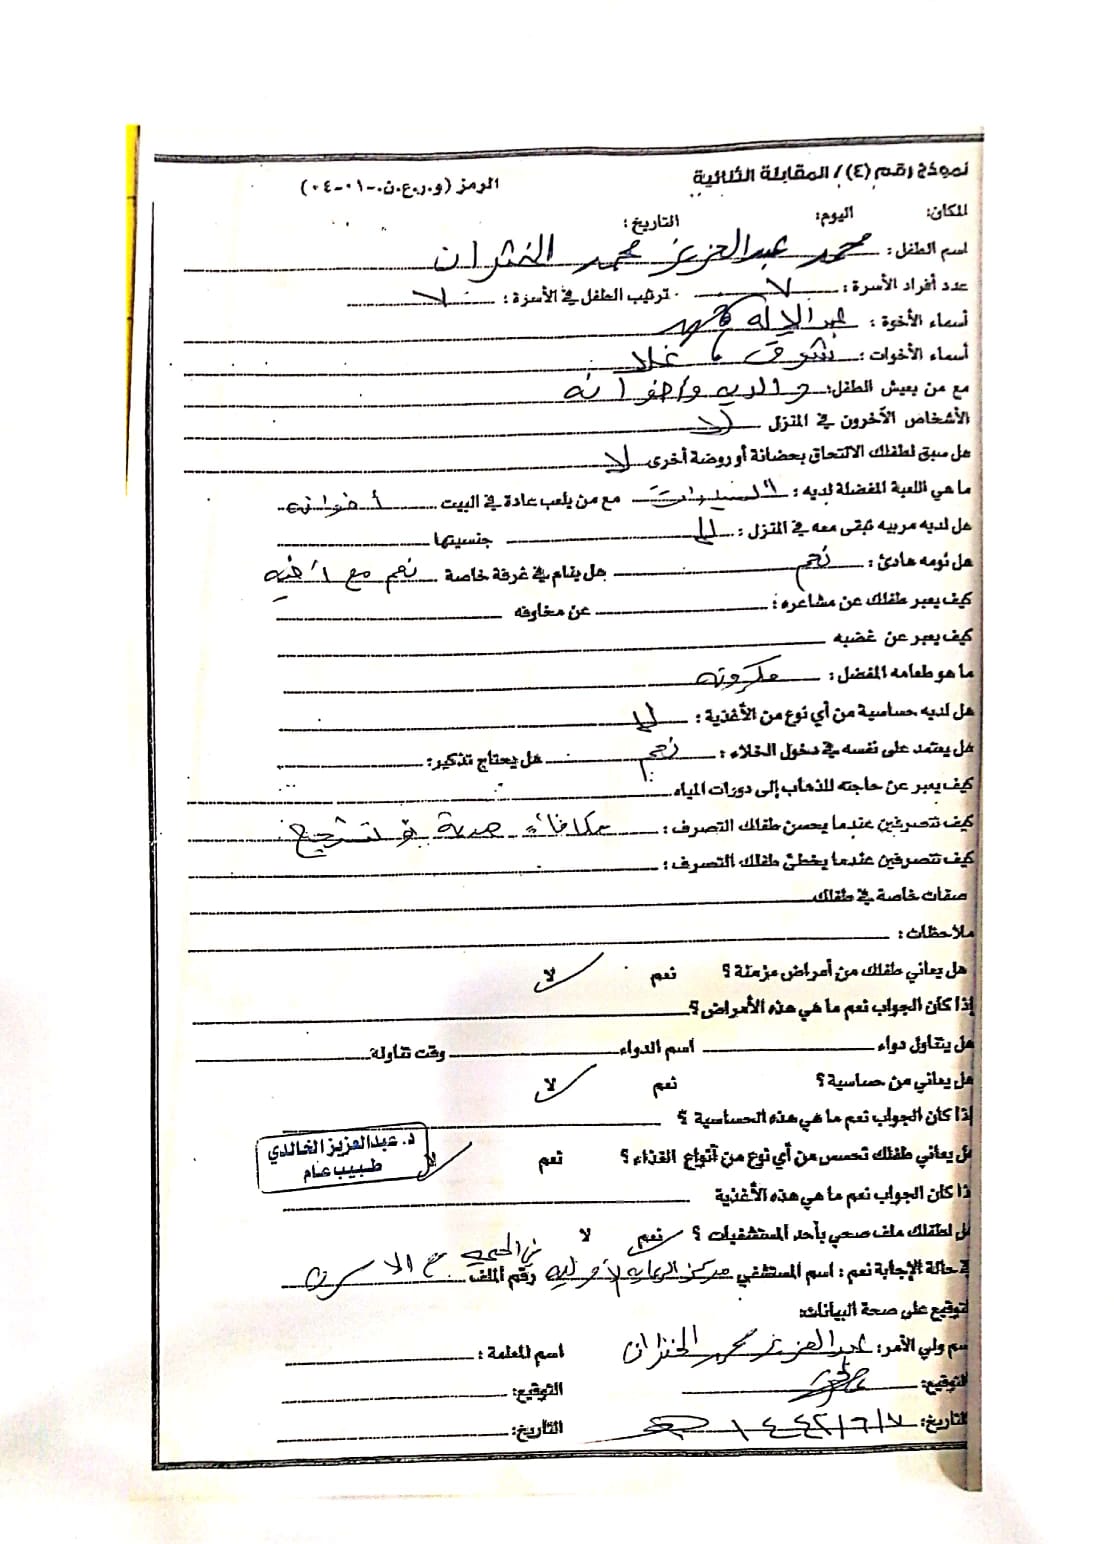 نموذج رقم (٤) / المقابلة الثنائية الرمز (و.ر.ع.ن.-٠١-٠٤)
المكان: اليوم: التاريخ:
اسم الطفل: محمد عبدالعزيز محمد الخثران
عدد أفراد الأسرة: ٧ ترتيب الطفل في الأسرة: ٧
أسماء الأخوة: عبدالإله
أسماء الأخوات: شوق غلا
مع من يعيش الطفل: والديه واخوانه
الأشخاص الآخرون في المنزل لا
هل سبق لطفلك الالتحاق بحضانة أو روضة أخرى لا
ما هي اللعبة المفضلة لديه: السيارات مع من يلعب عادة في البيت أخوانه
هل لديه مربيه تبقى معه في المنزل: لا جنسيتها
هل نومه هادئ: نعم هل ينام في غرفة خاصة نعم مع أخيه
كيف يعبر طفلك عن مشاعره: عن مخاوفه
كيف يعبر عن غضبه
ما هو طعامه المفضل: مكرونه
هل لديه حساسية من أي نوع من الأغذية: لا
هل يعتمد على نفسه في دخول الخلاء: نعم هل يحتاج تذكير:
كيف يعبر عن حاجته للذهاب إلى دورات المياه
كيف تتصرفين عندما يحسن طفلك التصرف: مكافأة هدية تشجيع
كيف تتصرفين عندما يخطئ طفلك التصرف:
صفات خاصة في طفلك
ملاحظات:
هل يعاني طفلك من أمراض مزمنة؟ نعم لا
إذا كان الجواب نعم ما هي هذه الأمراض؟
هل يتناول دواء اسم الدواء وقت تناوله
هل يعاني من حساسية؟ نعم لا
إذا كان الجواب نعم ما هي هذه الحساسية؟
هل يعاني طفلك تحسس من أي نوع من أنواع الغذاء؟ نعم لا
د. عبدالعزيز الخالدي
طبيب عام
ذا كان الجواب نعم ما هي هذه الأغذية
هل لطفلك ملف صحي بأحد المستشفيات؟ نعم لا
في حالة الإجابة نعم: اسم المستشفي مركز الرعاية الأوليه رقم الملف
توقيع على صحة البيانات:
سم ولي الأمر: عبدالعزيز محمد الخثران اسم المعلمة:
التوقيع: التوقيع:
التاريخ: ١٤٤٢/٦/٧ التاريخ: